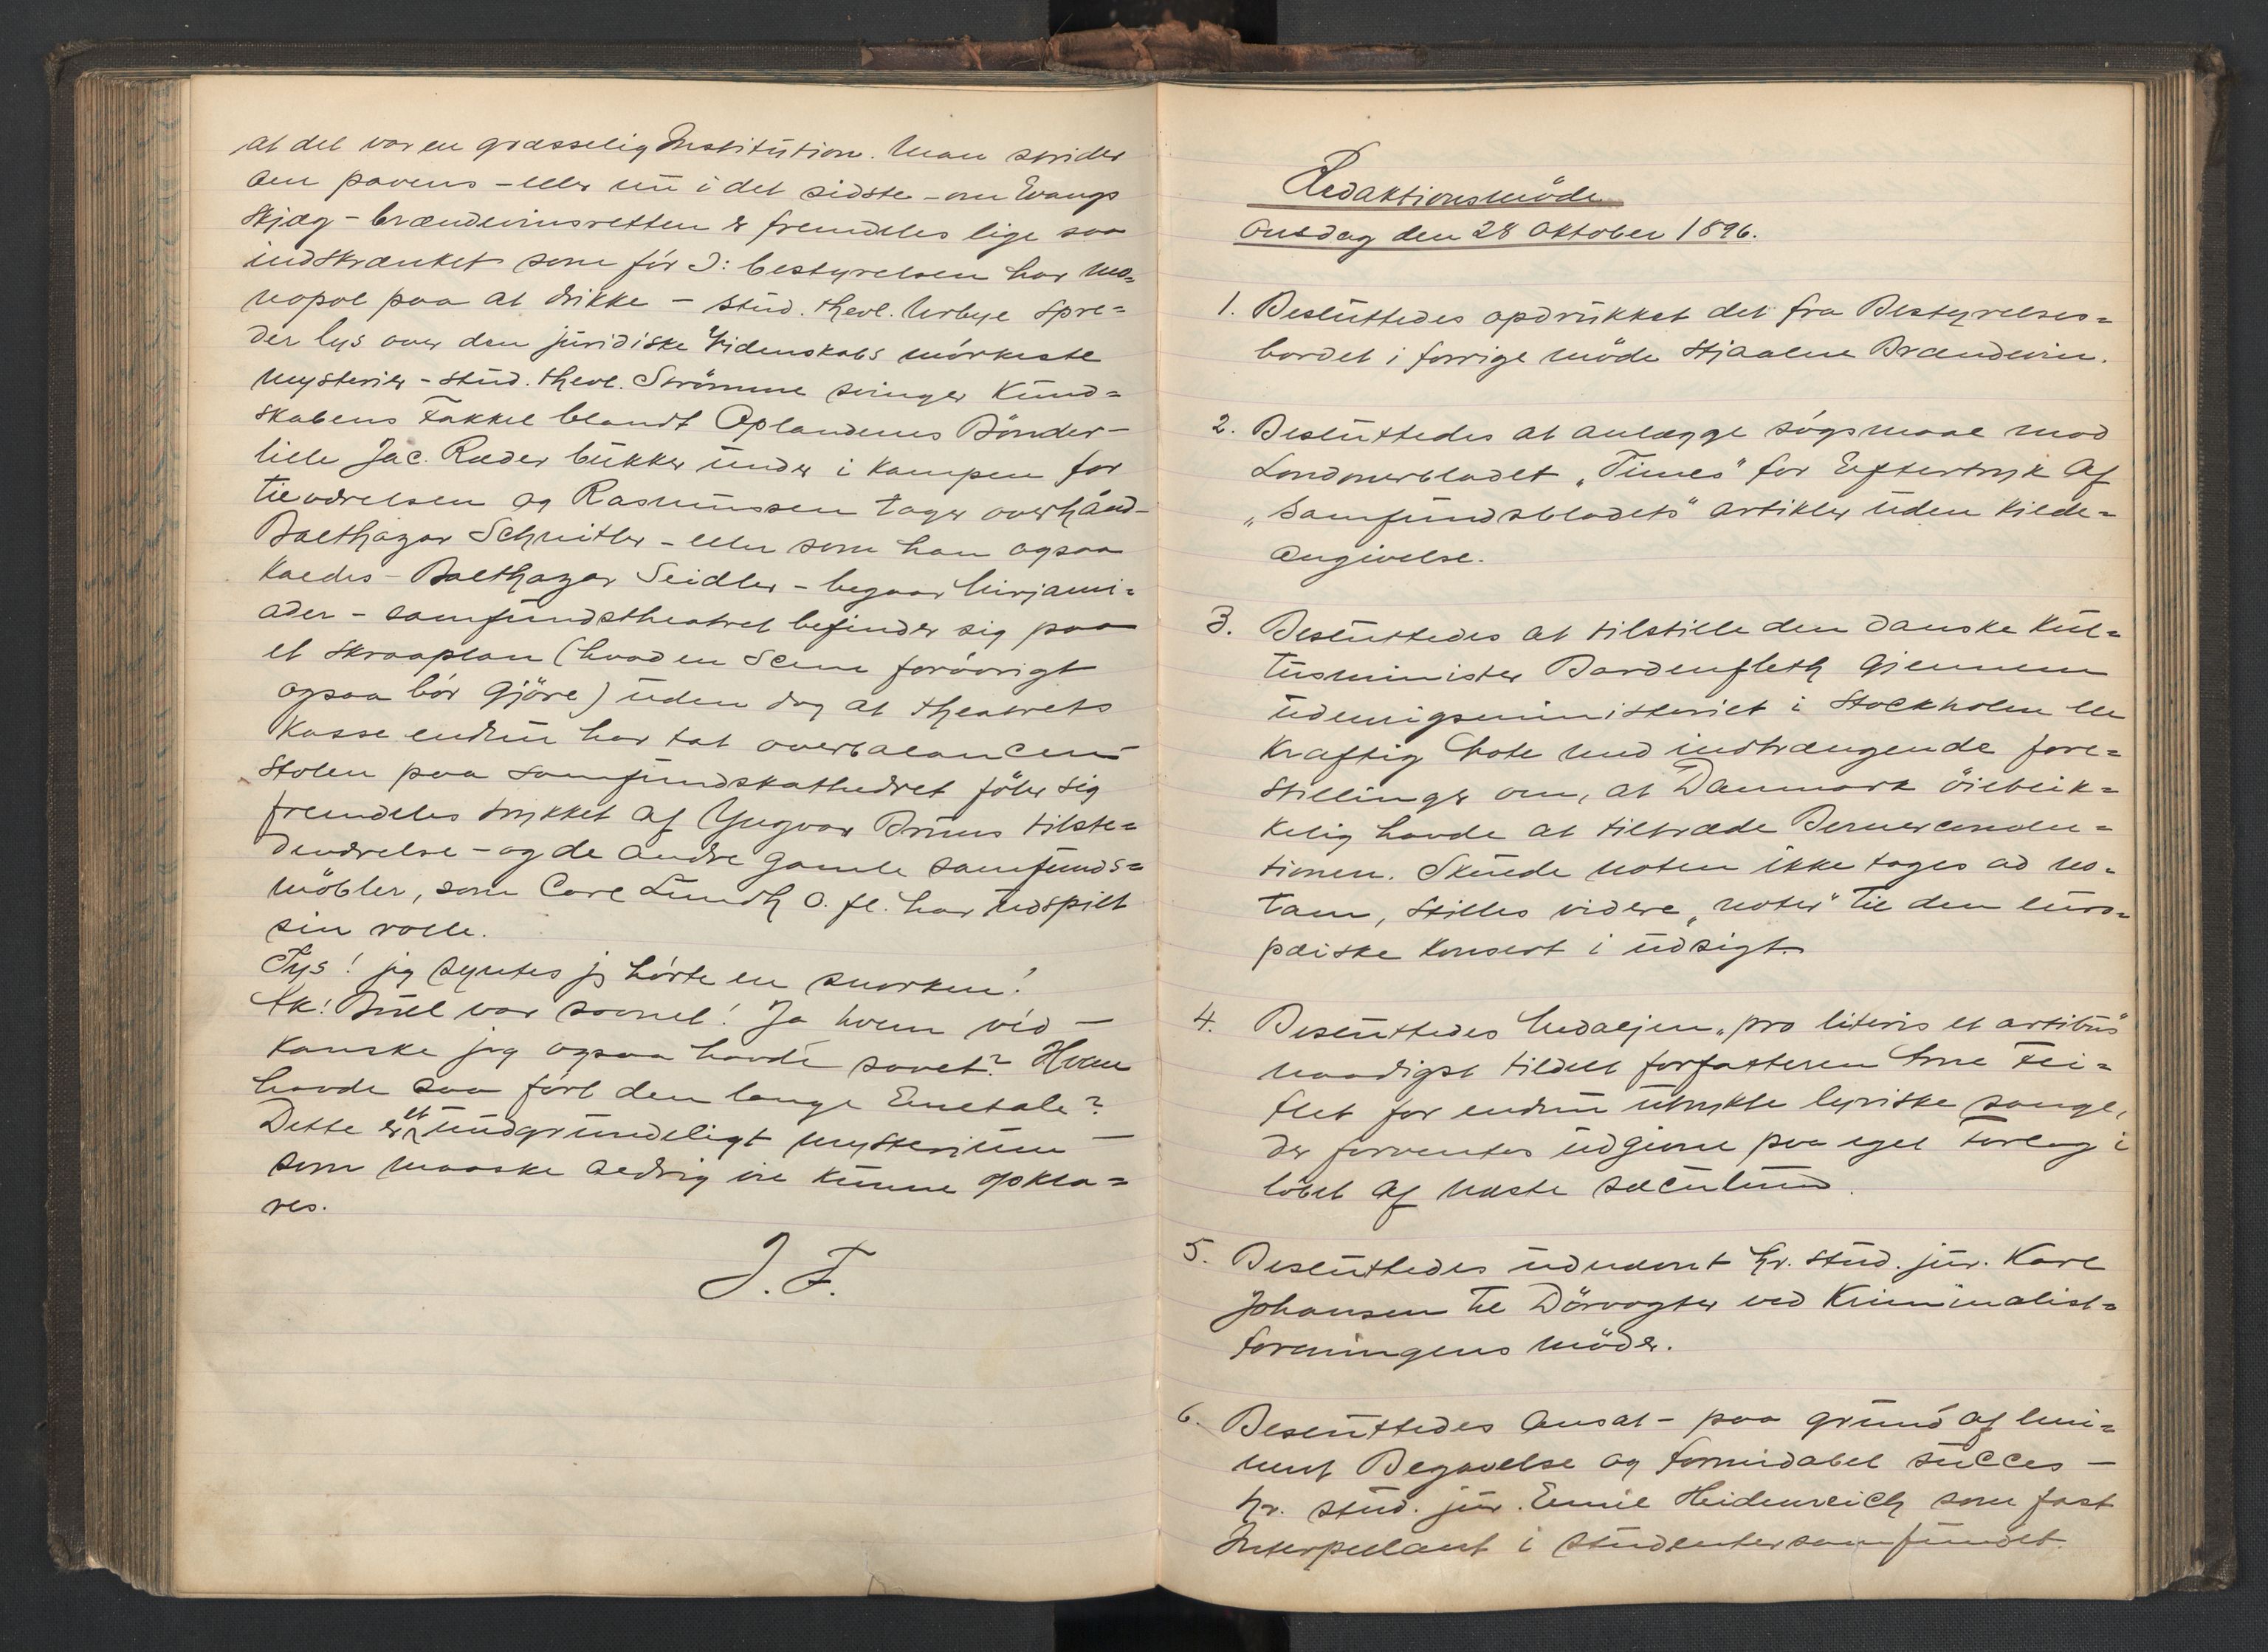 at det var en græsselig Institution. Man strider
om pavens – eller nu i det sidste – om Evangs
Skjæg – brændevinsretten er fremdeles lige saa
indskrænket som før ɔ: bestyrelsen har mo=
nopol paa at drikke – stud. theol. Urbye spre=
der lys over den juridiske Videnskabs mørkeste
mysterier – stud. theol. Strømme svinger Kund=
skabens Fakkel blandt Oplandenes Bønder –
lille Jac. Ræder bukker under i kampen for
tilværelsen og Rasmussen tager overhånd –
Balthazar Schnitler – eller som han ogsaa
kaldes – Balthazar Seidler – begaar Mirjami=
ader – samfundstheatret befinder sig paa
et Skraaplan (hvad en Scene forøvrigt
ogsaa bør gjøre) uden dog at theatrets
Kasse endnu har tat overbalancen
Stolen paa samfundskathedret føler sig
fremdeles trykket af Yngvar Bruns tilste=
deværelse – og de andre gamle samfunds=
møbler, som Carl Lundh o. fl. har udspilt
sin rolle.
Tys! jeg syntes jeg hørte en snorken!
Ak! Bull var sovnet! Ja hvem véd –
kanske jeg ogsaa havde sovet? Hvem
havde saa ført den lange Enetale?
Dette er et uudgrundeligt mysterium –
som maaske aldrig vil kunne opkla=
res.
J. F.
Redaktionsmøde
Onsdag den 28 Oktober 1896.
1. Besluttedes opdrukket det fra Bestyrelses=
bordet i forrige møde stjaalne Brændevin.
2. Besluttedes at anlægge søgsmaal mod
Londonerbladet „Times" for Eftertryk af
„Samfundsbladets" artikler uden Kilde=
angivelse.
3. Besluttedes at tilstille den danske Kul=
tusminister Bardenfleth gjennem
udenrigsministeriet i Stockholm en
kraftig Note med indtrængende fore=
stillinger om, at Danmark øieblik=
kelig havde at tiltræde Bernerconven=
tionen. Skulde noten ikke tages ad no=
tam, stilles videre „noter" til den euro=
pæiske Konsert i udsigt.
4. Besluttedes Medaljen „pro literis et artibus"
naadigst tildelt forfatteren Arne Fei=
let for endnu utrykte lyriske sange,
der forventes udgivne paa eget Forlag i
løbet af næste sæculum.
5. Besluttedes udnævnt hr. stud. jur. Karl
Johansen til Dørvogter ved Kriminalist=
foreningens møder.
6. Besluttedes ansat – paa grund af emi=
nent Begavelse og formidabel succes –
hr. stud. jur. Emil Heidenreich som fast
Interpellant i studentersamfundet.